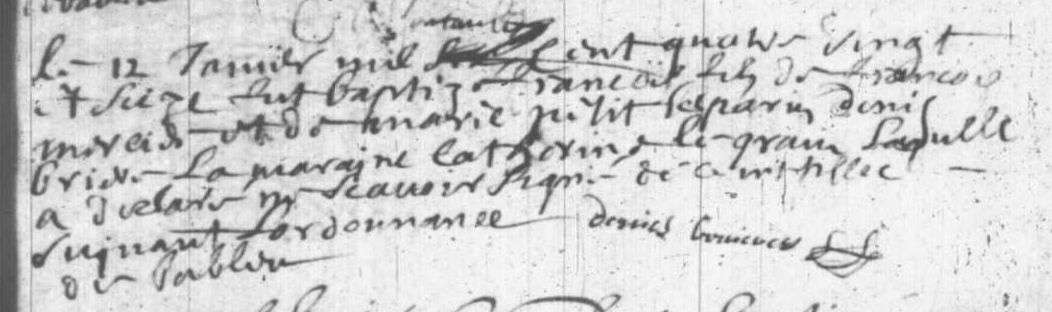 Le 12 Janvier mil cent quatre vingt
et seize fut baptizé francois filz de francois
mercier et de marie petit le parin denis
briere La maraine Catherine le grain Laquelle
a declaré ne scavoir signer de ce
suivant Lordonnance denies
de sablon